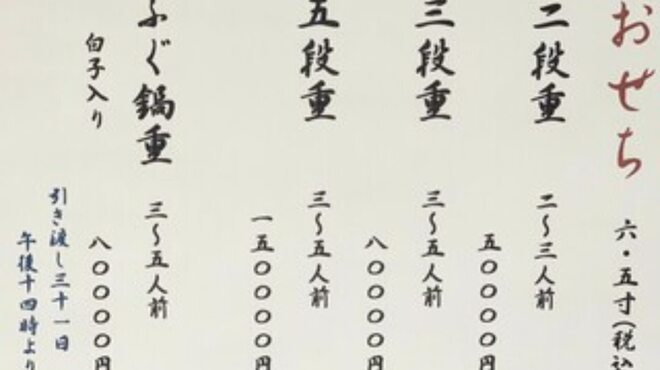 おせち 六・五寸(税込
二段重 二〜三人前
五〇〇〇〇円
三段重 三〜五人前
八〇〇〇〇円
五段重 三〜五人前
一五〇〇〇〇円
ふぐ鍋重 三〜五人前
白子入り 八〇〇〇〇円
引き渡し三十一日
午後十四時より